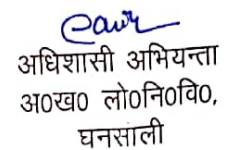 अधिशासी अभियन्ता
अ०ख० लो०नि०वि०,
घनसाली